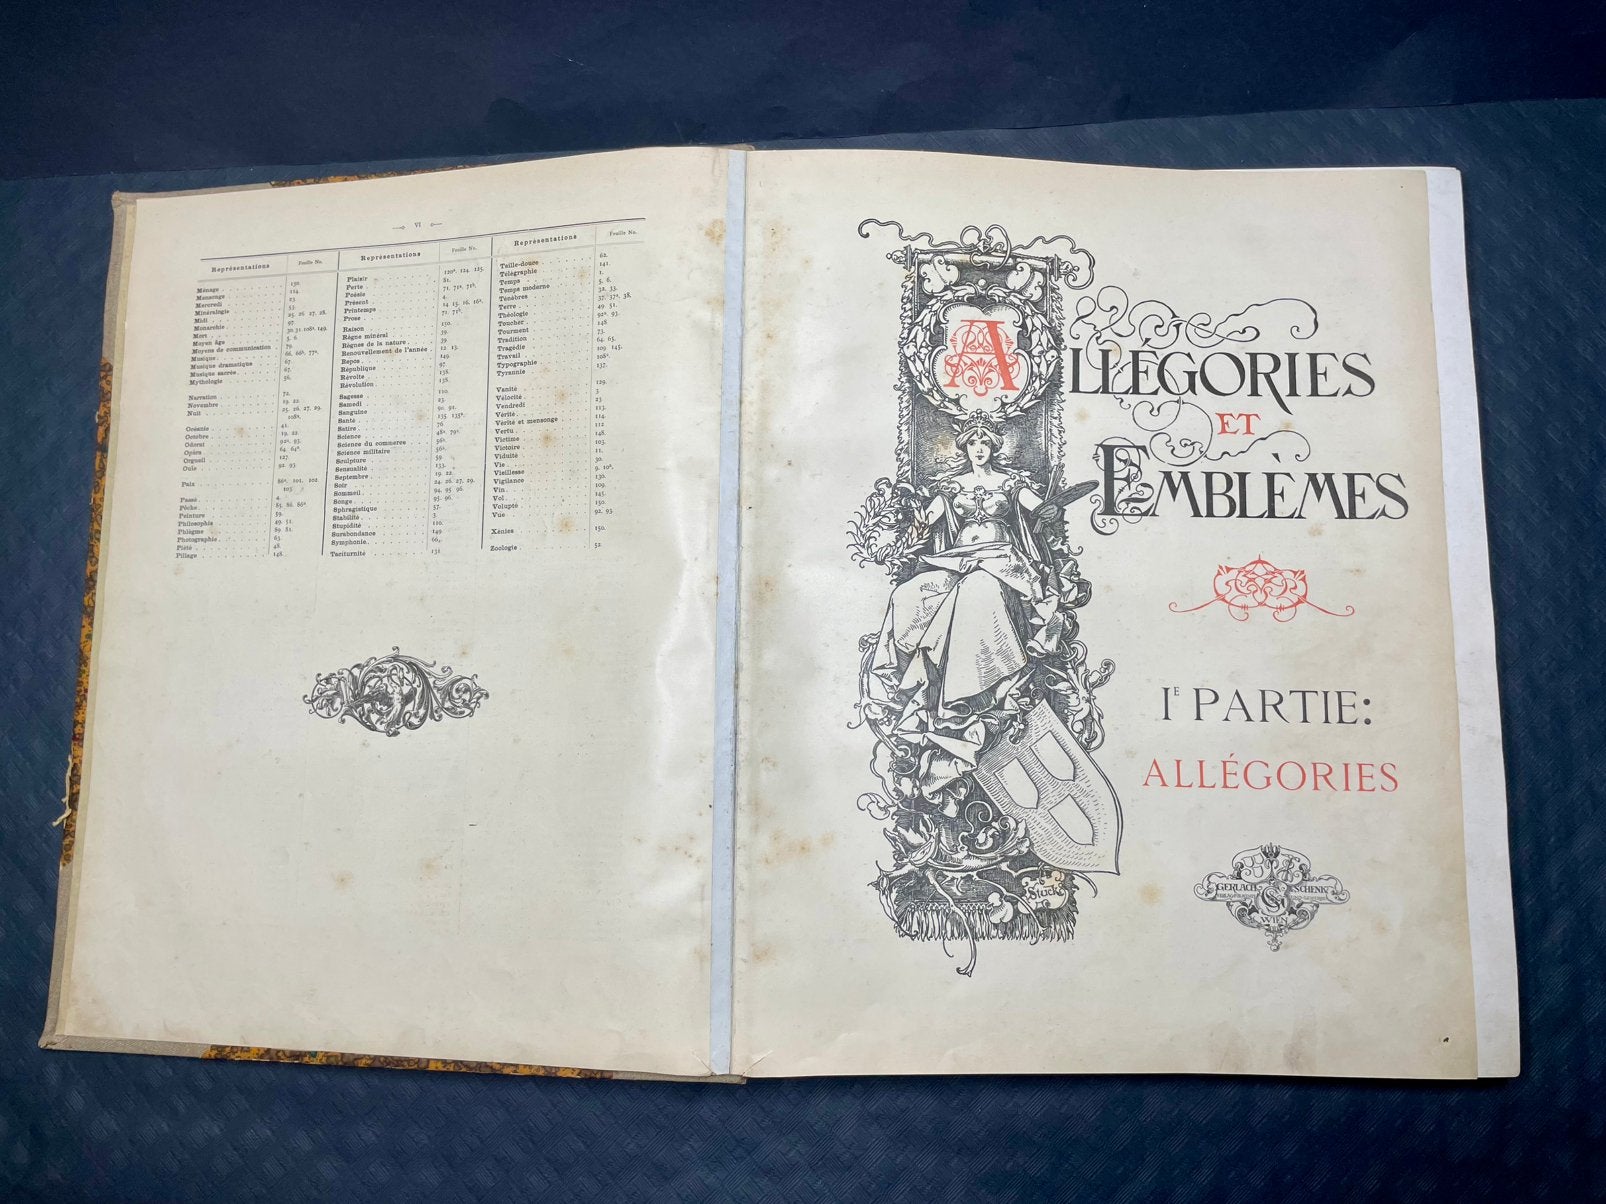 VI
Représentations Feuille No.
Ménage 150.
Mensonge 114
Mercredi 23.
Minéralogie 53.
Midi 25. 26. 27. 28.
Monarchie 97
Mort 30. 31. 108a. 149.
Moyen âge 5. 6
Moyens de communication 79.
Musique 66. 66b. 77a.
Musique dramatique 67.
Musique sacrée 67.
Mythologie 56.
Narration 72.
Novembre 19. 22.
Nuit 25. 26. 27. 29.
108a.
Océanie 41.
Octobre 19. 22.
Odorat 92a. 93.
Opéra 64. 64a.
Orgueil 127.
Ouïe 92. 93.
Paix 86a. 101. 102.
103
Passé 4.
Pêche 85. 86. 86a.
Peinture 59.
Philosophie 49. 51.
Phlègme 89. 81.
Photographie 63.
Piété 48.
Pillage 148.
Représentations Feuille No.
Plaisir 120a. 124. 125.
Perte 81.
Poésie 71. 71a. 71b.
Présent 4.
Printemps 14. 15. 16. 16a.
Prose 71. 71b.
Raison 130.
Règne minéral 39.
Règnes de la nature 39
Renouvellement de l'année 12. 13.
Repos 149.
République 97.
Révolte 138.
Révolution 138.
Sagesse 110.
Samedi 23.
Sanguine 90. 91.
Santé 135 135a.
Satire 76
Science 48a. 79a.
Science du commerce 56b.
Science militaire 56a.
Sculpture 59.
Sensualité 133.
Septembre 19. 22.
Soir 24. 26. 27. 29.
Sommeil 94. 95. 96.
Songe 95. 96.
Sphragistique 57.
Stabilité 3.
Stupidité 110.
Surabondance 149
Symphonie 66.
Taciturnité 131
Représentations Feuille No.
Taille-douce 62.
Télégraphie 141.
Temps 1.
Temps moderne 5. 6.
Ténèbres 32. 33.
Terre 37. 37a. 38.
Théologie 49. 51.
Toucher 92a. 93.
Tourment 148
Tradition 73.
Tragédie 64. 65.
Travail 109. 145.
Typographie 108a.
Tyrannie 137.
Vanité 129.
Vélocité 3
Vendredi 23
Vérité 113.
Vérité et mensonge 114.
Vertu 112
Victime 148.
Victoire 103.
Viduité 11.
Vie 30.
Vieillesse 9. 10a.
Vigilance 130.
Vin 109.
Vol 145.
Volupté 150.
Vue 92. 93
Xénies 150.
Zoologie 52.
ALLÉGORIES
ET
EMBLÈMES
IE PARTIE:
ALLÉGORIES
Stuck
GERLACH & SCHENK
WIEN